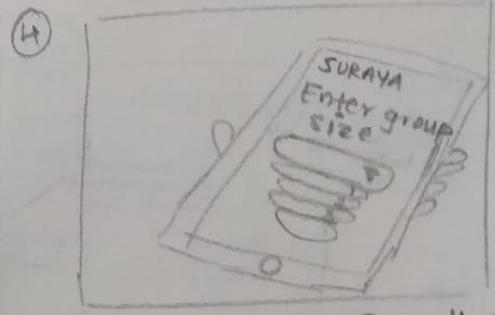 4
SURAYA
Enter group
size